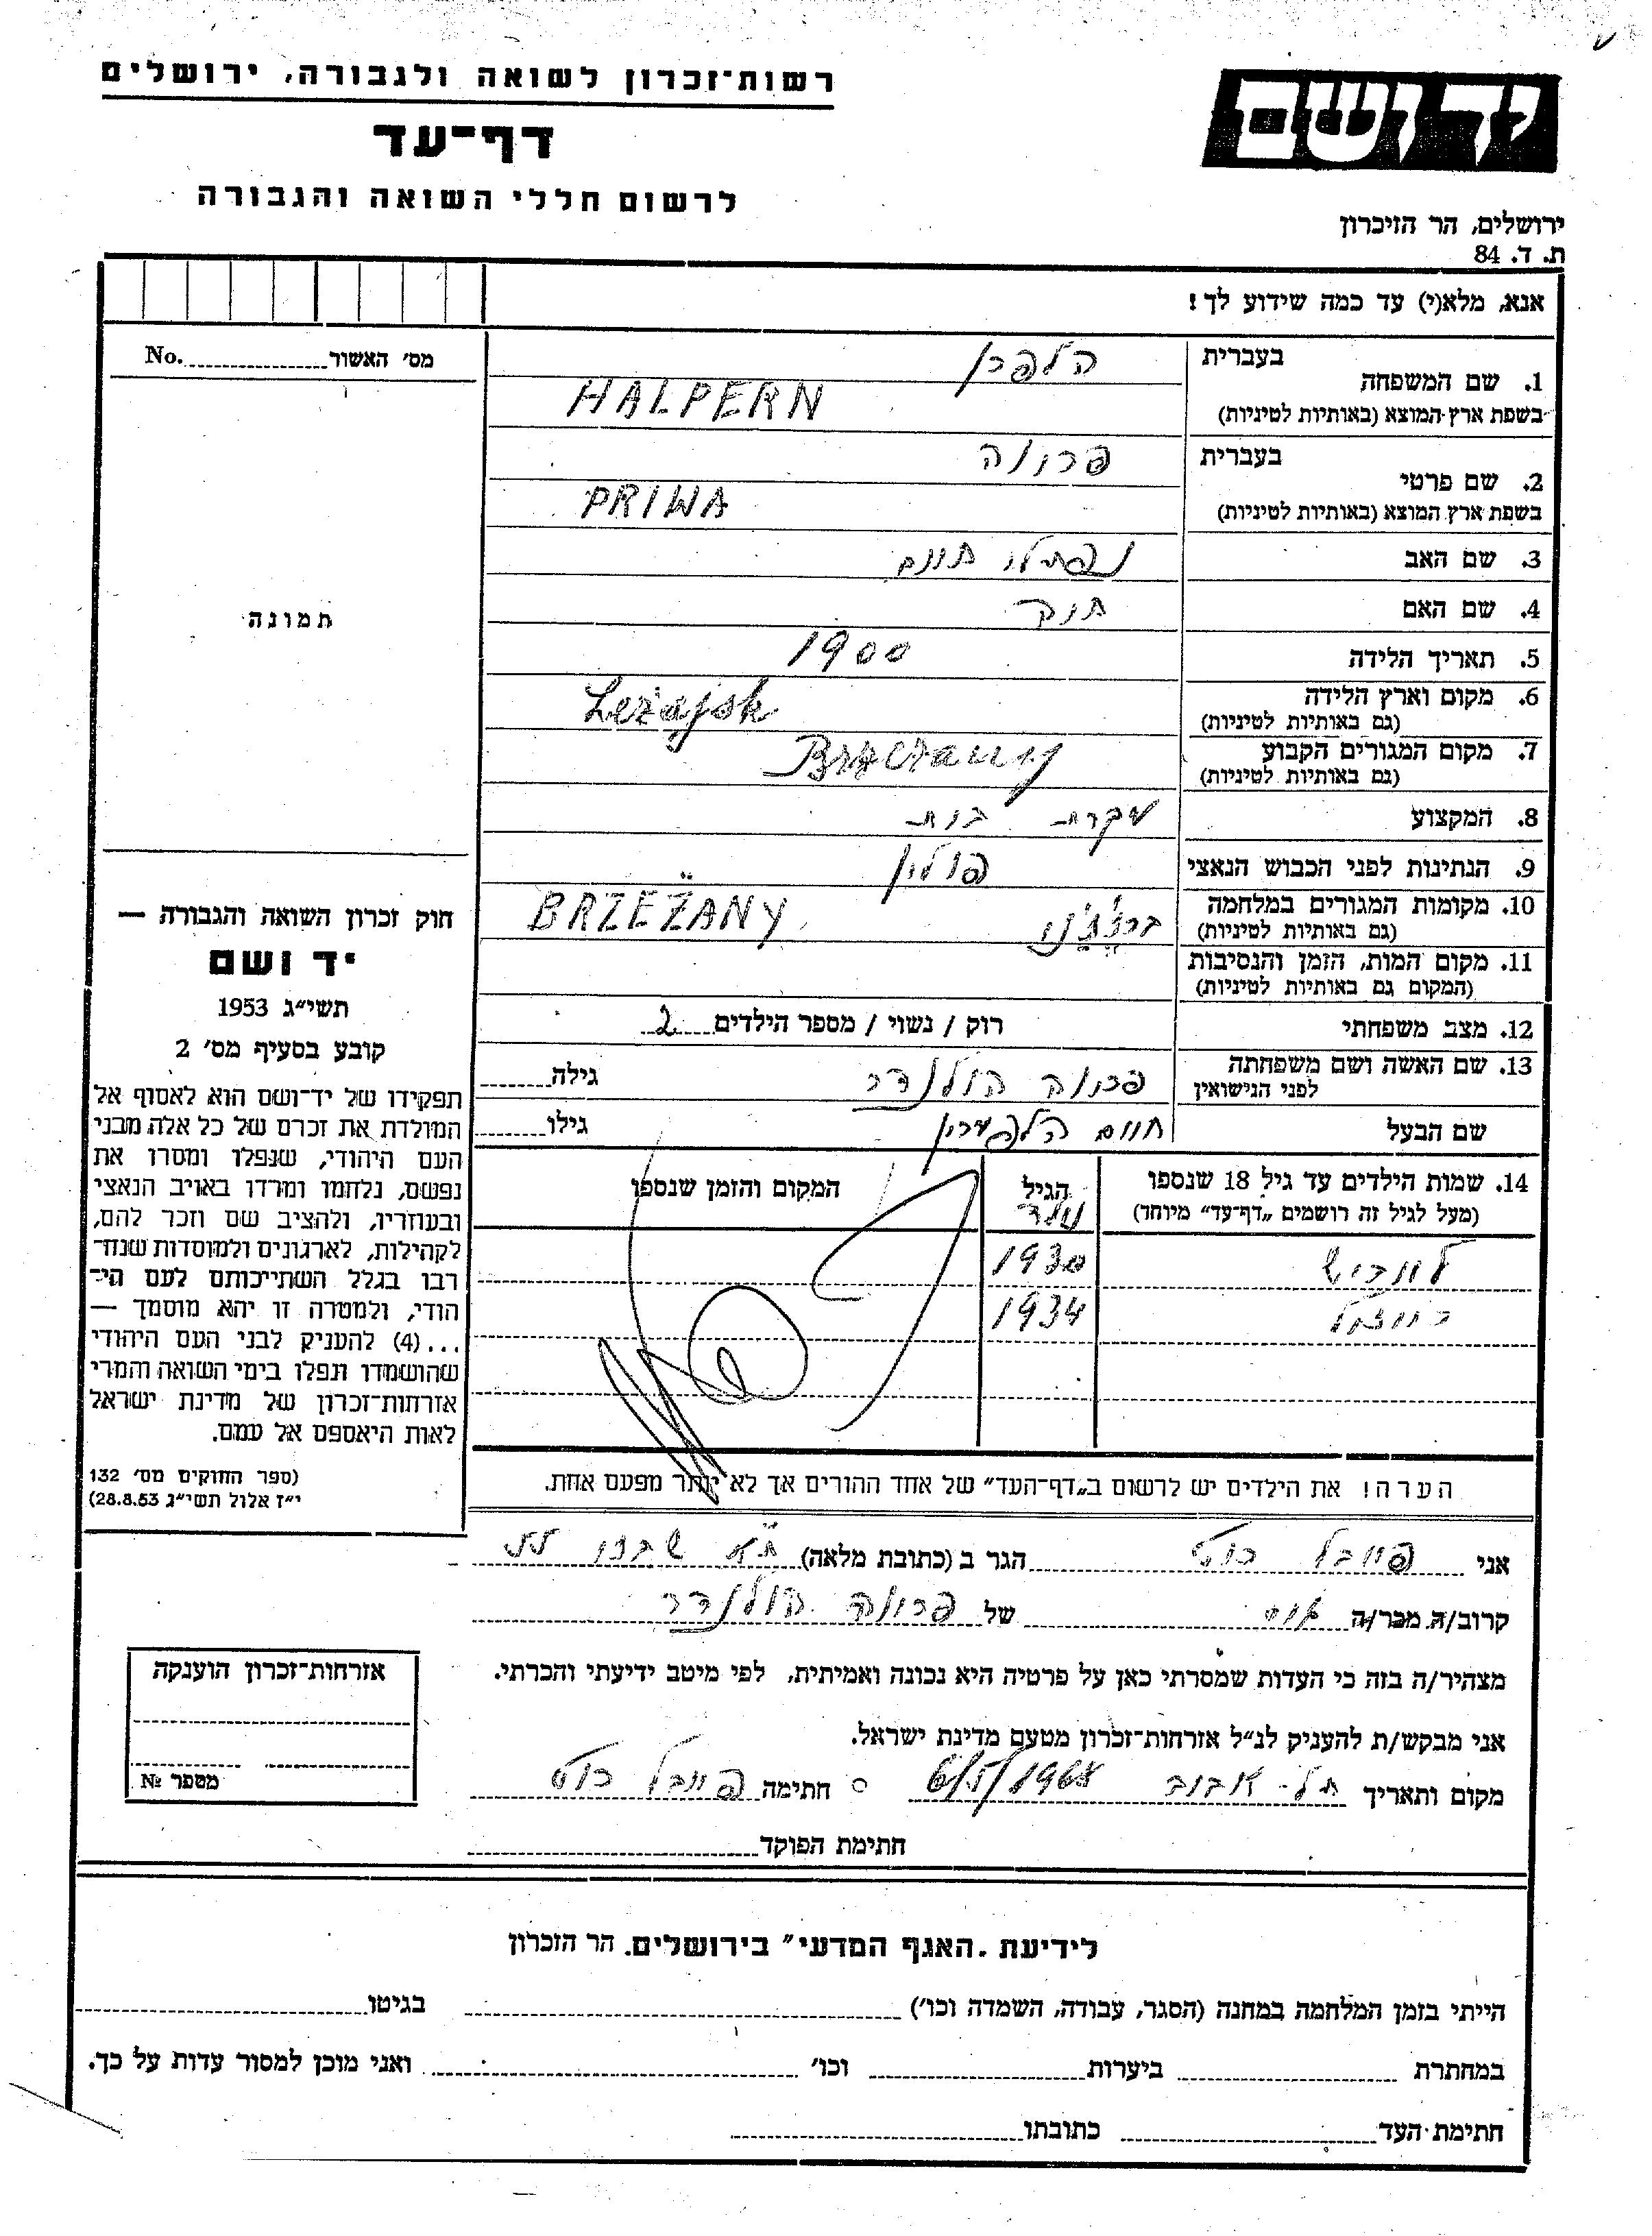 רשות־זכרון לשואה ולגבורה, ירושלים
דף־עד
לרשום חללי השואה והגבורה
יד ושם
ירושלים, הר הזיכרון
ת. ד. 84
אנא, מלא(י) עד כמה שידוע לך!
מס׳ האשור No.
תמונה
1. שם המשפחה בעברית הלפרן
בשפת ארץ המוצא (באותיות לטיניות) HALPERN
2. שם פרטי בעברית פרווה
בשפת ארץ המוצא (באותיות לטיניות) PRIWA
3. שם האב נפתלי חיים
4. שם האם
5. תאריך הלידה 1900
6. מקום וארץ הלידה Leżajsk
(גם באותיות לטיניות)
7. מקום המגורים הקבוע Brzeżany
(גם באותיות לטיניות)
8. המקצוע עקרת בית
9. הנתינות לפני הכבוש הנאצי פולין
10. מקומות המגורים במלחמה BRZEŻANY
(גם באותיות לטיניות)
11. מקום המות, הזמן והנסיבות
(המקום גם באותיות לטיניות)
12. מצב משפחתי רוק / נשוי / מספר הילדים 2
13. שם האשה ושם משפחתה פריוה הולנדר גילה
לפני הנישואין
שם הבעל חיים הלפערין גילו
14. שמות הילדים עד גיל 18 שנספו הגיל המקום והזמן שנספו
(מעל לגיל זה רושמים „דף־עד" מיוחד) נולד
1930
רייזל 1934
הערה! את הילדים יש לרשום ב„דף־העד" של אחד ההורים אך לא יותר מפעם אחת.
חוק זכרון השואה והגבורה —
יד ושם
תשי״ג 1953
קובע בסעיף מס׳ 2
תפקידו של יד־ושם הוא לאסוף אל
המולדת את זכרם של כל אלה מבני
העם היהודי, שנפלו ומסרו את
נפשם, נלחמו ומרדו באויב הנאצי
ובעוזריו, ולהציב שם וזכר להם,
לקהילות, לארגונים ולמוסדות שנח־
רבו בגלל השתייכותם לעם הי־
הודי, ולמטרה זו יהא מוסמך —
...(4) להעניק לבני העם היהודי
שהושמדו ונפלו בימי השואה והמרי
אזרחות־זכרון של מדינת ישראל
לאות היאספם אל עמם.
(ספר החוקים מס׳ 132
י״ז אלול תשי״ג 28.8.53)
אני פייבל רוט הגר ב (כתובת מלאה) ת״א שבזי
קרוב/ה מכר/ה של פריוה הולנדר
מצהיר/ה בזה כי העדות שמסרתי כאן על פרטיה היא נכונה ואמיתית, לפי מיטב ידיעתי והכרתי.
אני מבקש/ת להעניק לנ״ל אזרחות־זכרון מטעם מדינת ישראל.
מקום ותאריך תל־אביב 6/5/1968 חתימה פייבל רוט
חתימת הפוקד
אזרחות־זכרון הוענקה
מספר №
לידיעת „האגף המדעי" בירושלים. הר הזכרון
הייתי בזמן המלחמה במחנה (הסגר, עבודה, השמדה וכו׳) בגיטו
במחתרת ביערות וכו׳ ואני מוכן למסור עדות על כך.
חתימת העד כתובתו